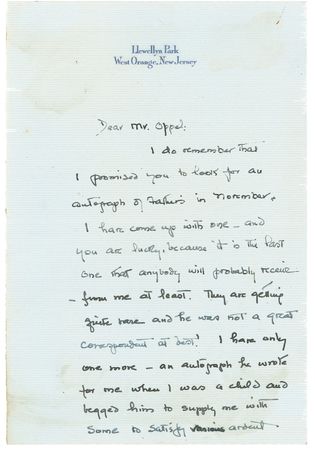 Llewellyn Park
West Orange, New Jersey
Dear Mr. Oppel:
I do remember that
I promised you to look for an
autograph of Father's in November.
I have come up with one - and
you are lucky, because it is the last
one that anybody will probably receive
- from me at least. They are getting
quite rare and he was not a great
correspondent at best! I have only
one more - an autograph he wrote
for me when I was a child and
begged him to supply me with
some to satisfy various ardent